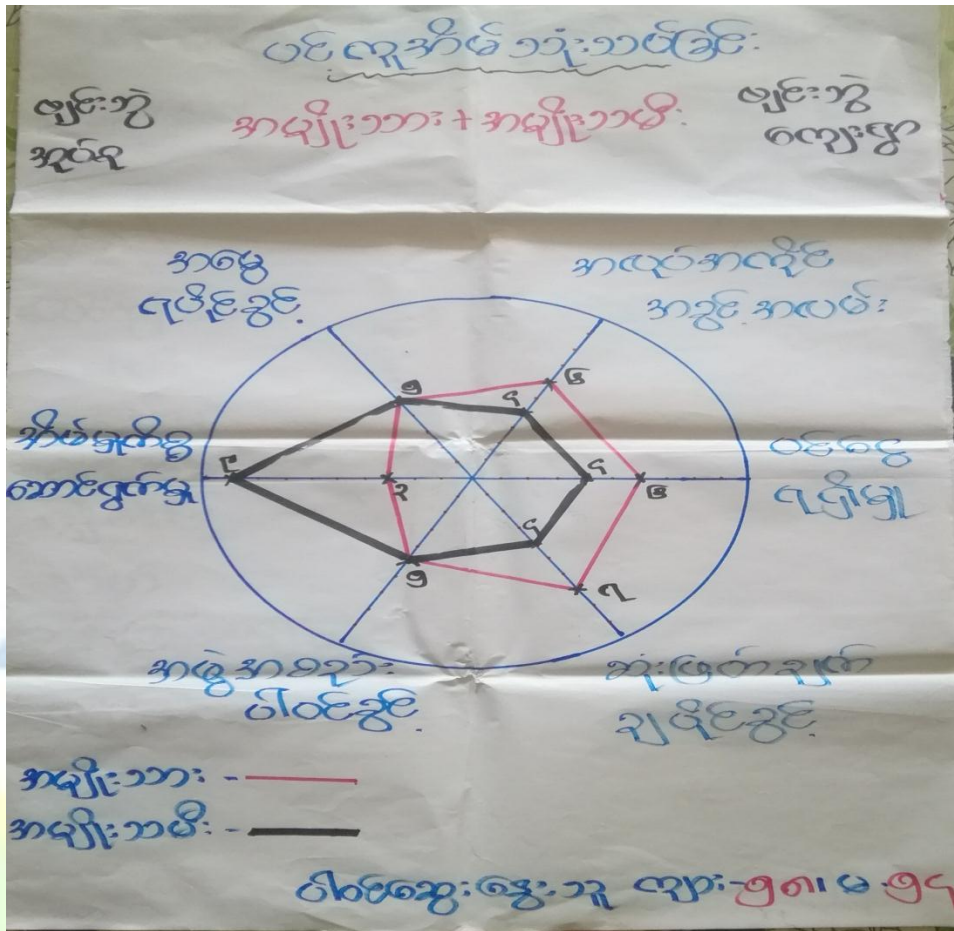 ပင်ကူအိမ်သုံးသပ်ခြင်း
ဖျင်းဘွဲ
အုပ်စု
အမျိုးသား + အမျိုးသမီး
ဖျင်းဘွဲ
ကျေးရွာ
အမွေ
ရပိုင်ခွင့်
အလုပ်အကိုင်
အခွင့်အလမ်း
၅ ၄ ၆
အိမ်မှုကိစ္စ
ဆောင်ရွက်မှု
၉ ၃ ၄ ၆
ဝင်ငွေ
ရရှိမှု
၅ ၄ ၇
အဖွဲ့အစည်း
ပါဝင်ခွင့်
ဆုံးဖြတ်ချက်
ချပိုင်ခွင့်
အမျိုးသား -
အမျိုးသမီး -
ပါဝင်ဆွေးနွေးသူ ကျား-၅၈၊ မ-၅၄